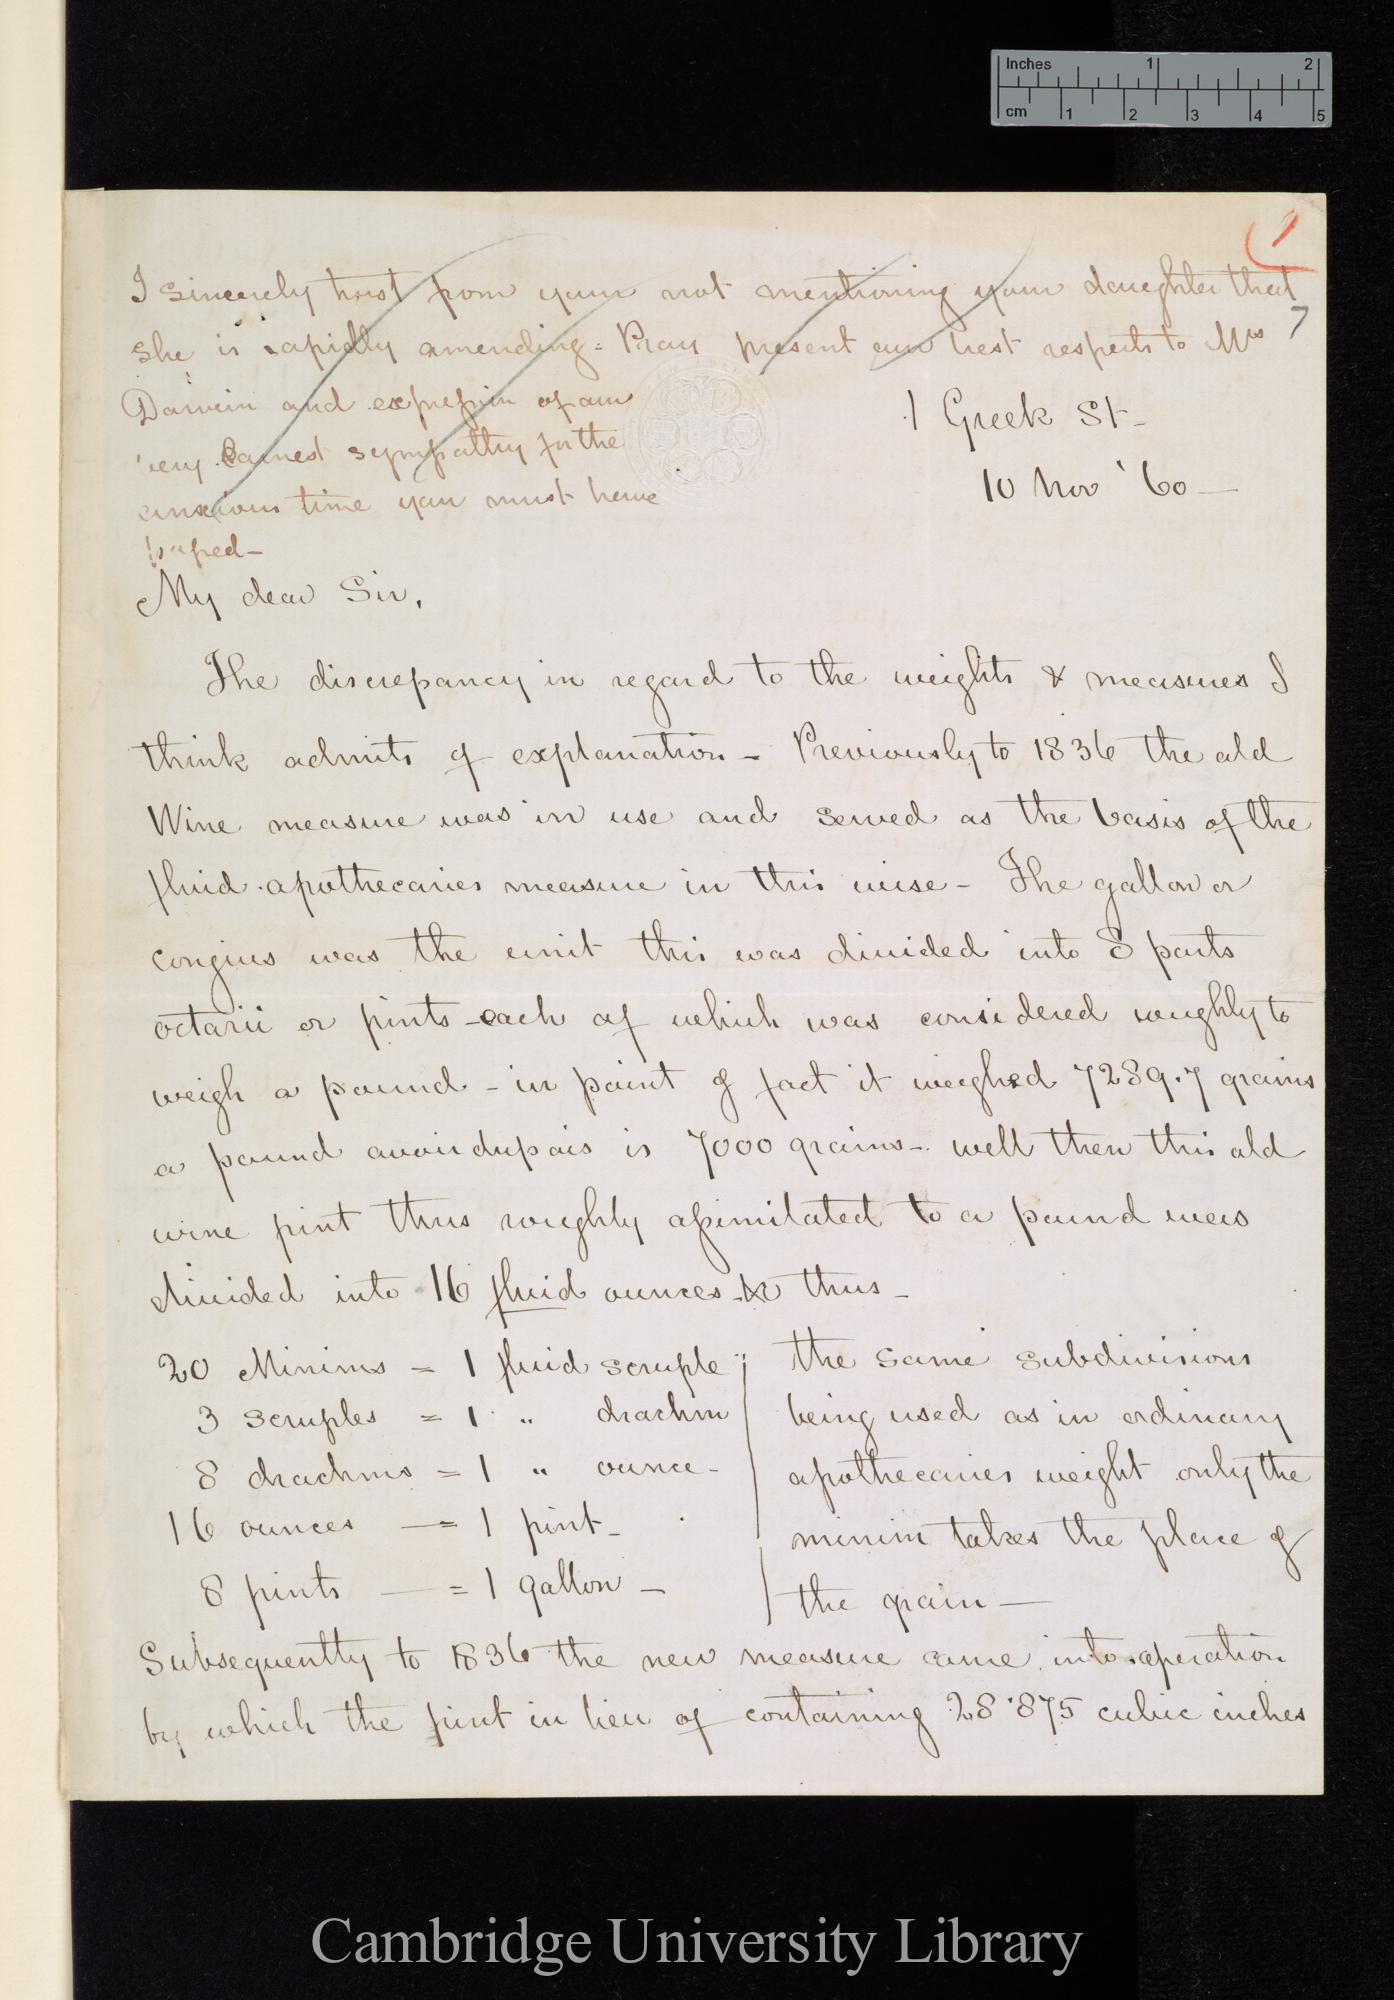 Inches 1 2
cm 1 2 3 4 5
1
I sincerely trust from your not mentioning your daughter that
7
she is rapidly amending = Pray present our best respects to Mrs
Darwin and expression of our
very earnest sympathy for the
anxious time you must have
passed —
1 Greek St —
10 Nov '60 —
My dear Sir,
The discrepancy in regard to the weights & measures I
think admits of explanation — Previously to 1836 the old
Wine measure was in use and served as the basis of the
fluid apothecaries measure in this wise — The gallon or
congius was the unit this was divided into 8 parts
octarii or pints — each of which was considered roughly to
weigh a pound — in point of fact it weighed 7289.7 grains
a pound avoirdupois is 7000 grains — well then this old
wine pint thus roughly assimilated to a pound was
divided into 16 fluid ounces &c thus —
20 Minims = 1 fluid scruple
3 scruples = 1 " drachm
8 drachms = 1 " ounce —
16 ounces — = 1 pint —
8 pints — = 1 gallon —
the same subdivisions
being used as in ordinary
apothecaries weight only the
minim takes the place of
the grain —
Subsequently to 1836 the new measure came into operation
by which the pint in lieu of containing 28.875 cubic inches
Cambridge University Library